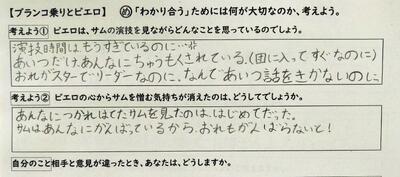 【ブランコ乗りとピエロ】 め「わかり合う」ためには何が大切なのか、考えよう。
考えよう① ピエロは、サムの演技を見ながらどんなことを思っているのでしょう。
演技時間はもうすぎているのに…
あいつだけあんなにちゅうもくされている。(団に入ってすぐなのに)
おれがスターでリーダーなのに、なんであいつ話をきかないのに
考えよう② ピエロの心からサムを憎む気持ちが消えたのは、どうしてでしょうか。
あんなにつかれはてたサムを見たのは、はじめてだった。
サムはあんなにがんばっているから、おれもがんばらないと!
自分のこと 相手と意見が違ったとき、あなたは、どうしますか。